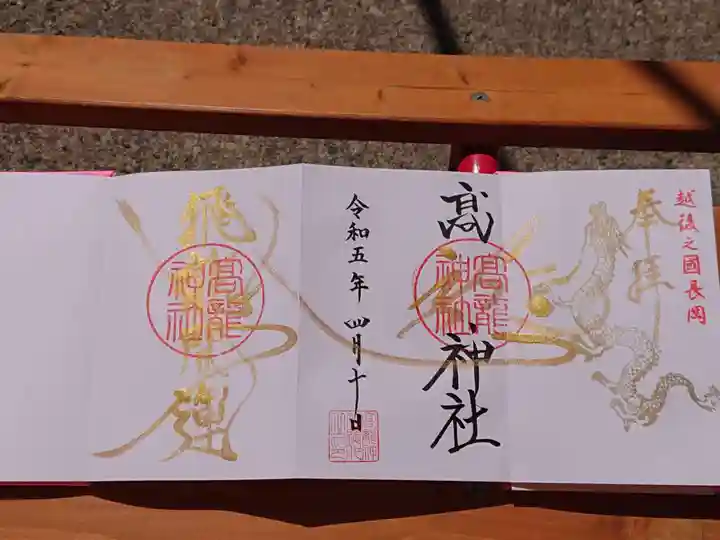 越後之國長岡
奉拝
髙 神社
髙龍
神社
令和五年 四月十日
飛 運
髙龍
神社